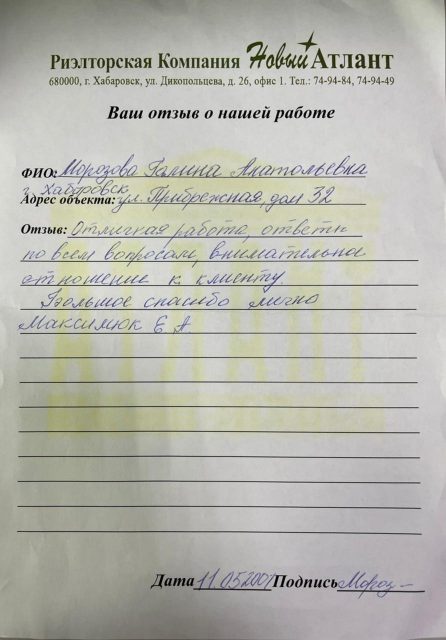 Риэлторская Компания Новый Атлант
680000, г. Хабаровск, ул. Дикопольцева, д. 26, офис 1. Тел.: 74-94-84, 74-94-49
Ваш отзыв о нашей работе
ФИО: Морозова Галина Анатольевна
г. Хабаровск
Адрес объекта: ул. Прибрежная, дом 32
Отзыв: Отличная работа, ответы
по всем вопросам, внимательное
отношение к клиенту.
Большое спасибо лично
Максимюк Е А
Дата 11.05.200 Подпись Мороз